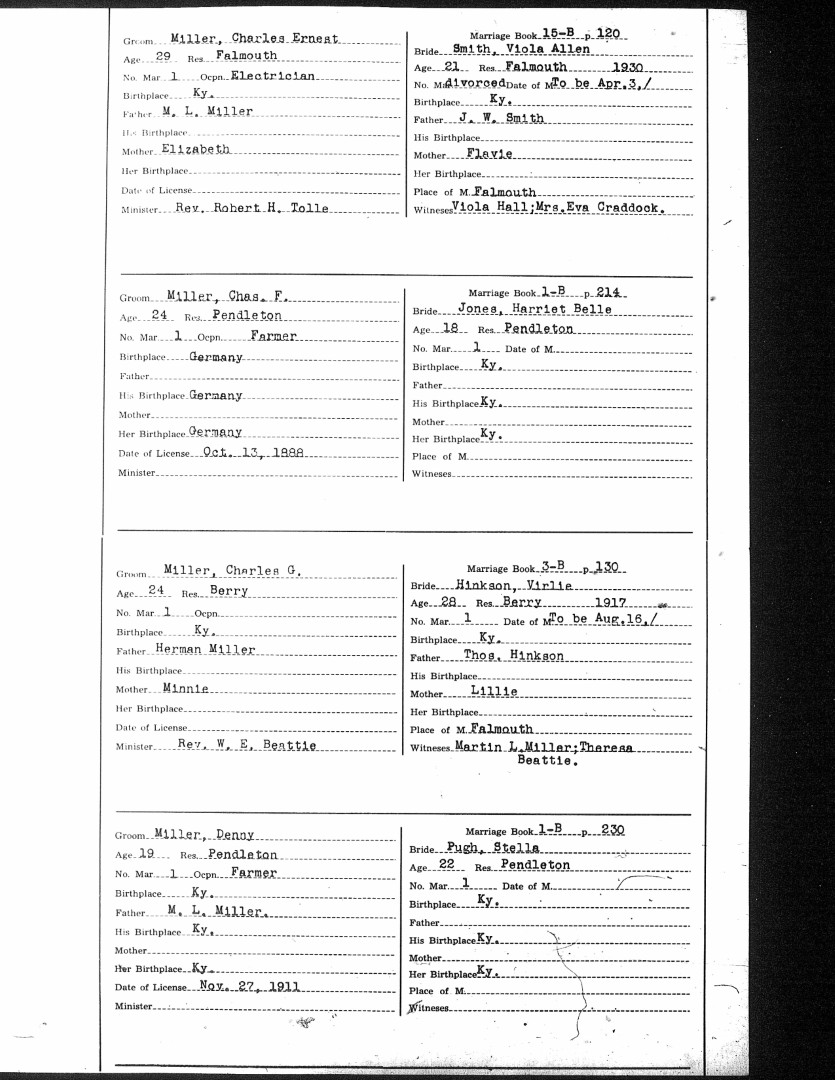 Groom Miller, Charles Ernest
Age 29 Res. Falmouth
No. Mar 1 Ocpn. Electrician
Birthplace Ky.
Father M. L. Miller
His Birthplace
Mother Elizabeth
Her Birthplace
Date of License
Minister Rev. Robert H. Tolle
Marriage Book 15-B p 120
Bride Smith, Viola Allen
Age 21 Res. Falmouth 1930
No. Mar divorced Date of M To be Apr.3,/
Birthplace Ky.
Father J. W. Smith
His Birthplace
Mother Flavie
Her Birthplace
Place of M. Falmouth
Witnesses Viola Hall;Mrs.Eva Craddock.
Groom Miller, Chas. F.
Age 24 Res. Pendleton
No. Mar 1 Ocpn. Farmer
Birthplace Germany
Father
His Birthplace Germany
Mother
Her Birthplace Germany
Date of License Oct. 13, 1888
Minister
Marriage Book 1-B p 214
Bride Jones, Harriet Belle
Age 18 Res. Pendleton
No. Mar. 1 Date of M.
Birthplace Ky.
Father
His Birthplace Ky.
Mother
Her Birthplace Ky.
Place of M.
Witnesses
Groom Miller, Charles G.
Age 24 Res. Berry
No. Mar 1 Ocpn.
Birthplace Ky.
Father Herman Miller
His Birthplace
Mother Minnie
Her Birthplace
Date of License
Minister Rev. W. E. Beattie
Marriage Book 3-B p 130
Bride Hinkson, Virlie
Age 28 Res. Berry 1917
No. Mar. 1 Date of M To be Aug.16,/
Birthplace Ky.
Father Thos. Hinkson
His Birthplace
Mother Lillie
Her Birthplace
Place of M. Falmouth
Witnesses Martin L.Miller;Theresa
Beattie.
Groom Miller, Denny
Age 19 Res. Pendleton
No. Mar. 1 Ocpn. Farmer
Birthplace Ky.
Father M. L. Miller.
His Birthplace Ky.
Mother
Her Birthplace Ky.
Date of License Nov. 27, 1911
Minister
Marriage Book 1-B p 230
Bride Pugh, Stella
Age 22 Res. Pendleton
No. Mar. 1 Date of M.
Birthplace Ky.
Father
His Birthplace Ky.
Mother
Her Birthplace Ky.
Place of M.
Witnesses